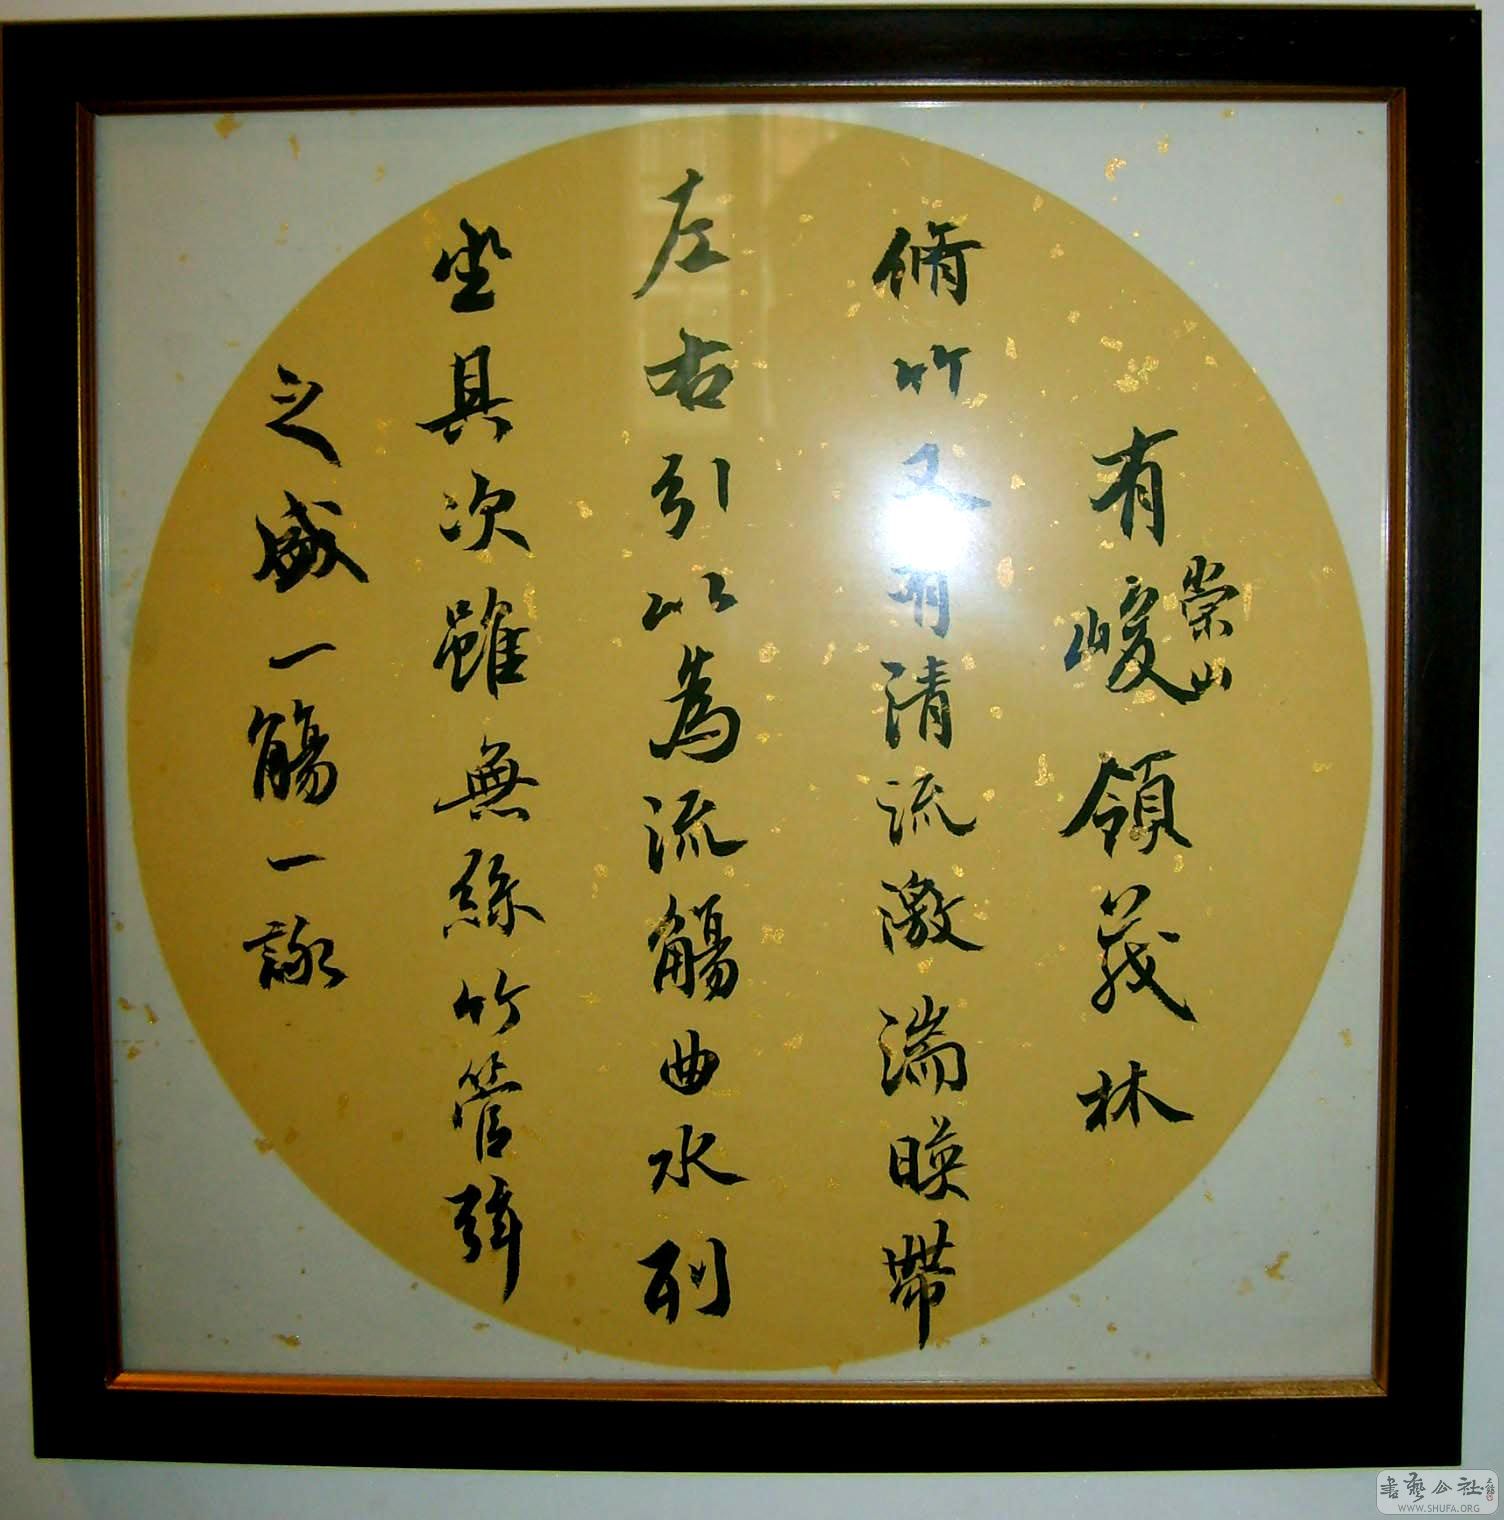 有崇山峻領茂林
脩竹又有清流激湍暎帶
左右引以為流觴曲水列
坐其次雖無絲竹管弦
之盛一觴一詠
書藝公社
WWW.SHUFA.ORG